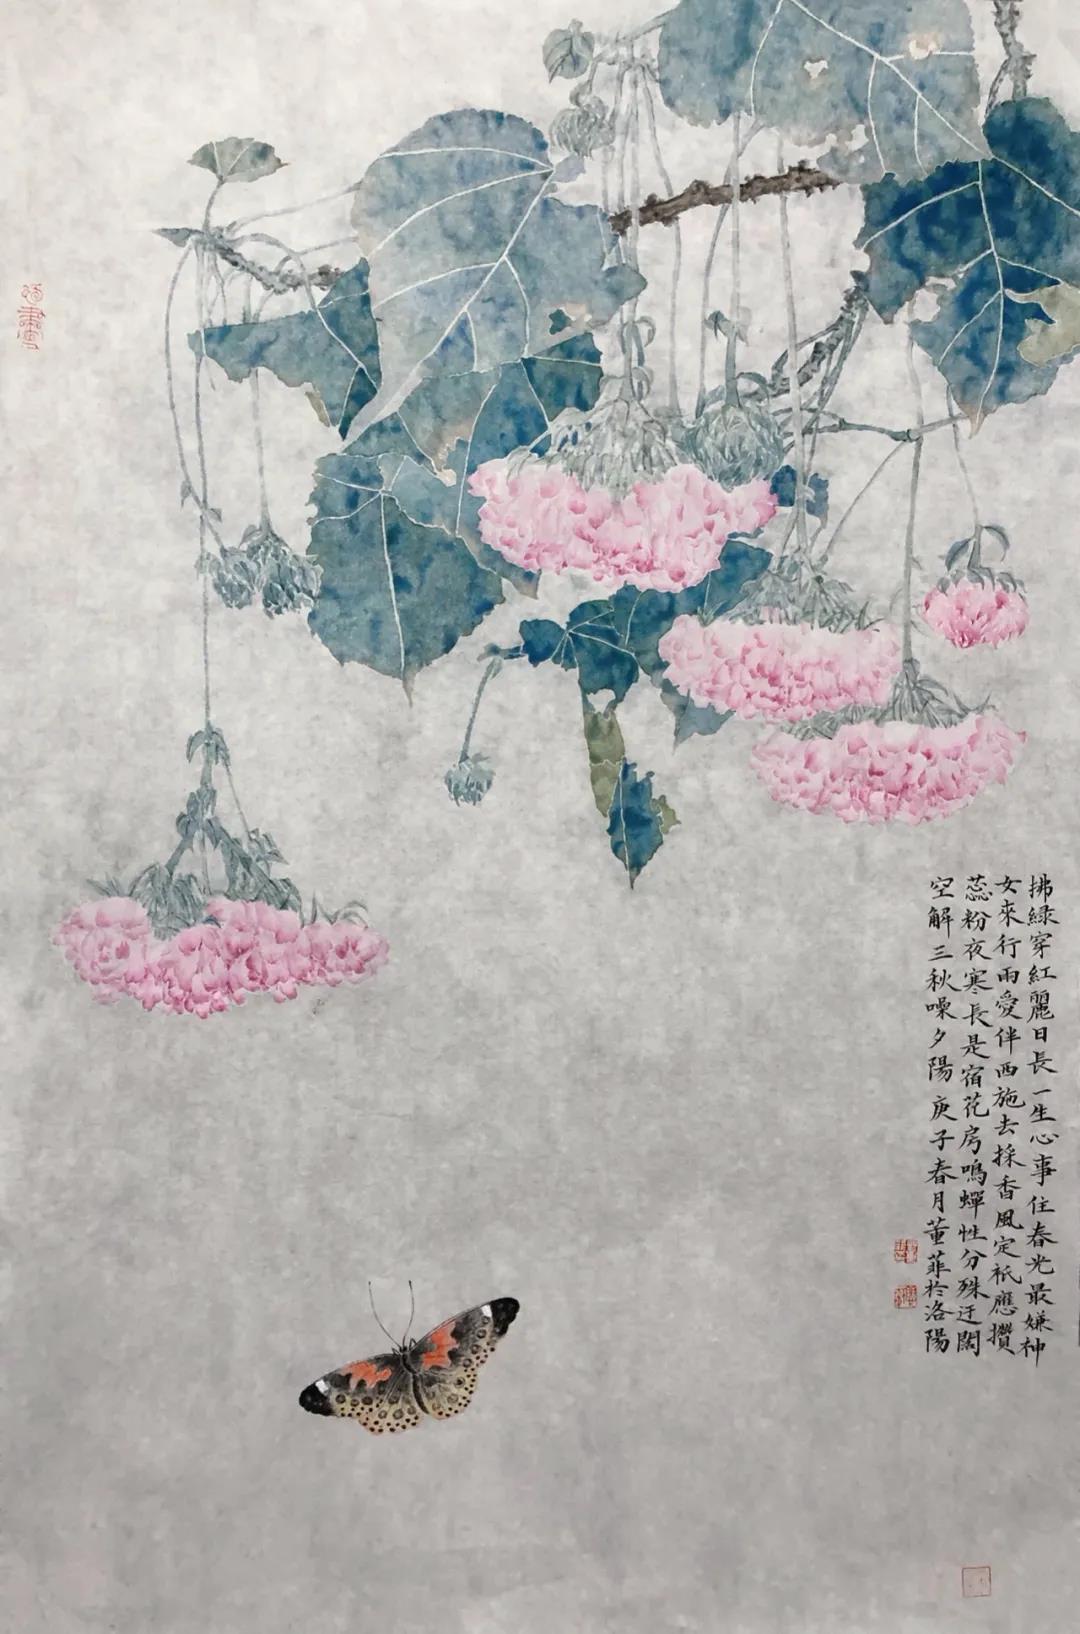 拂綠穿紅麗日長一生心事住春光最嫌神
女來行雨愛伴西施去採香風定祇應攢
蕊粉夜寒長是宿花房鳴蟬性分殊迂闊
空解三秋噪夕陽庚子春月董菲於洛陽